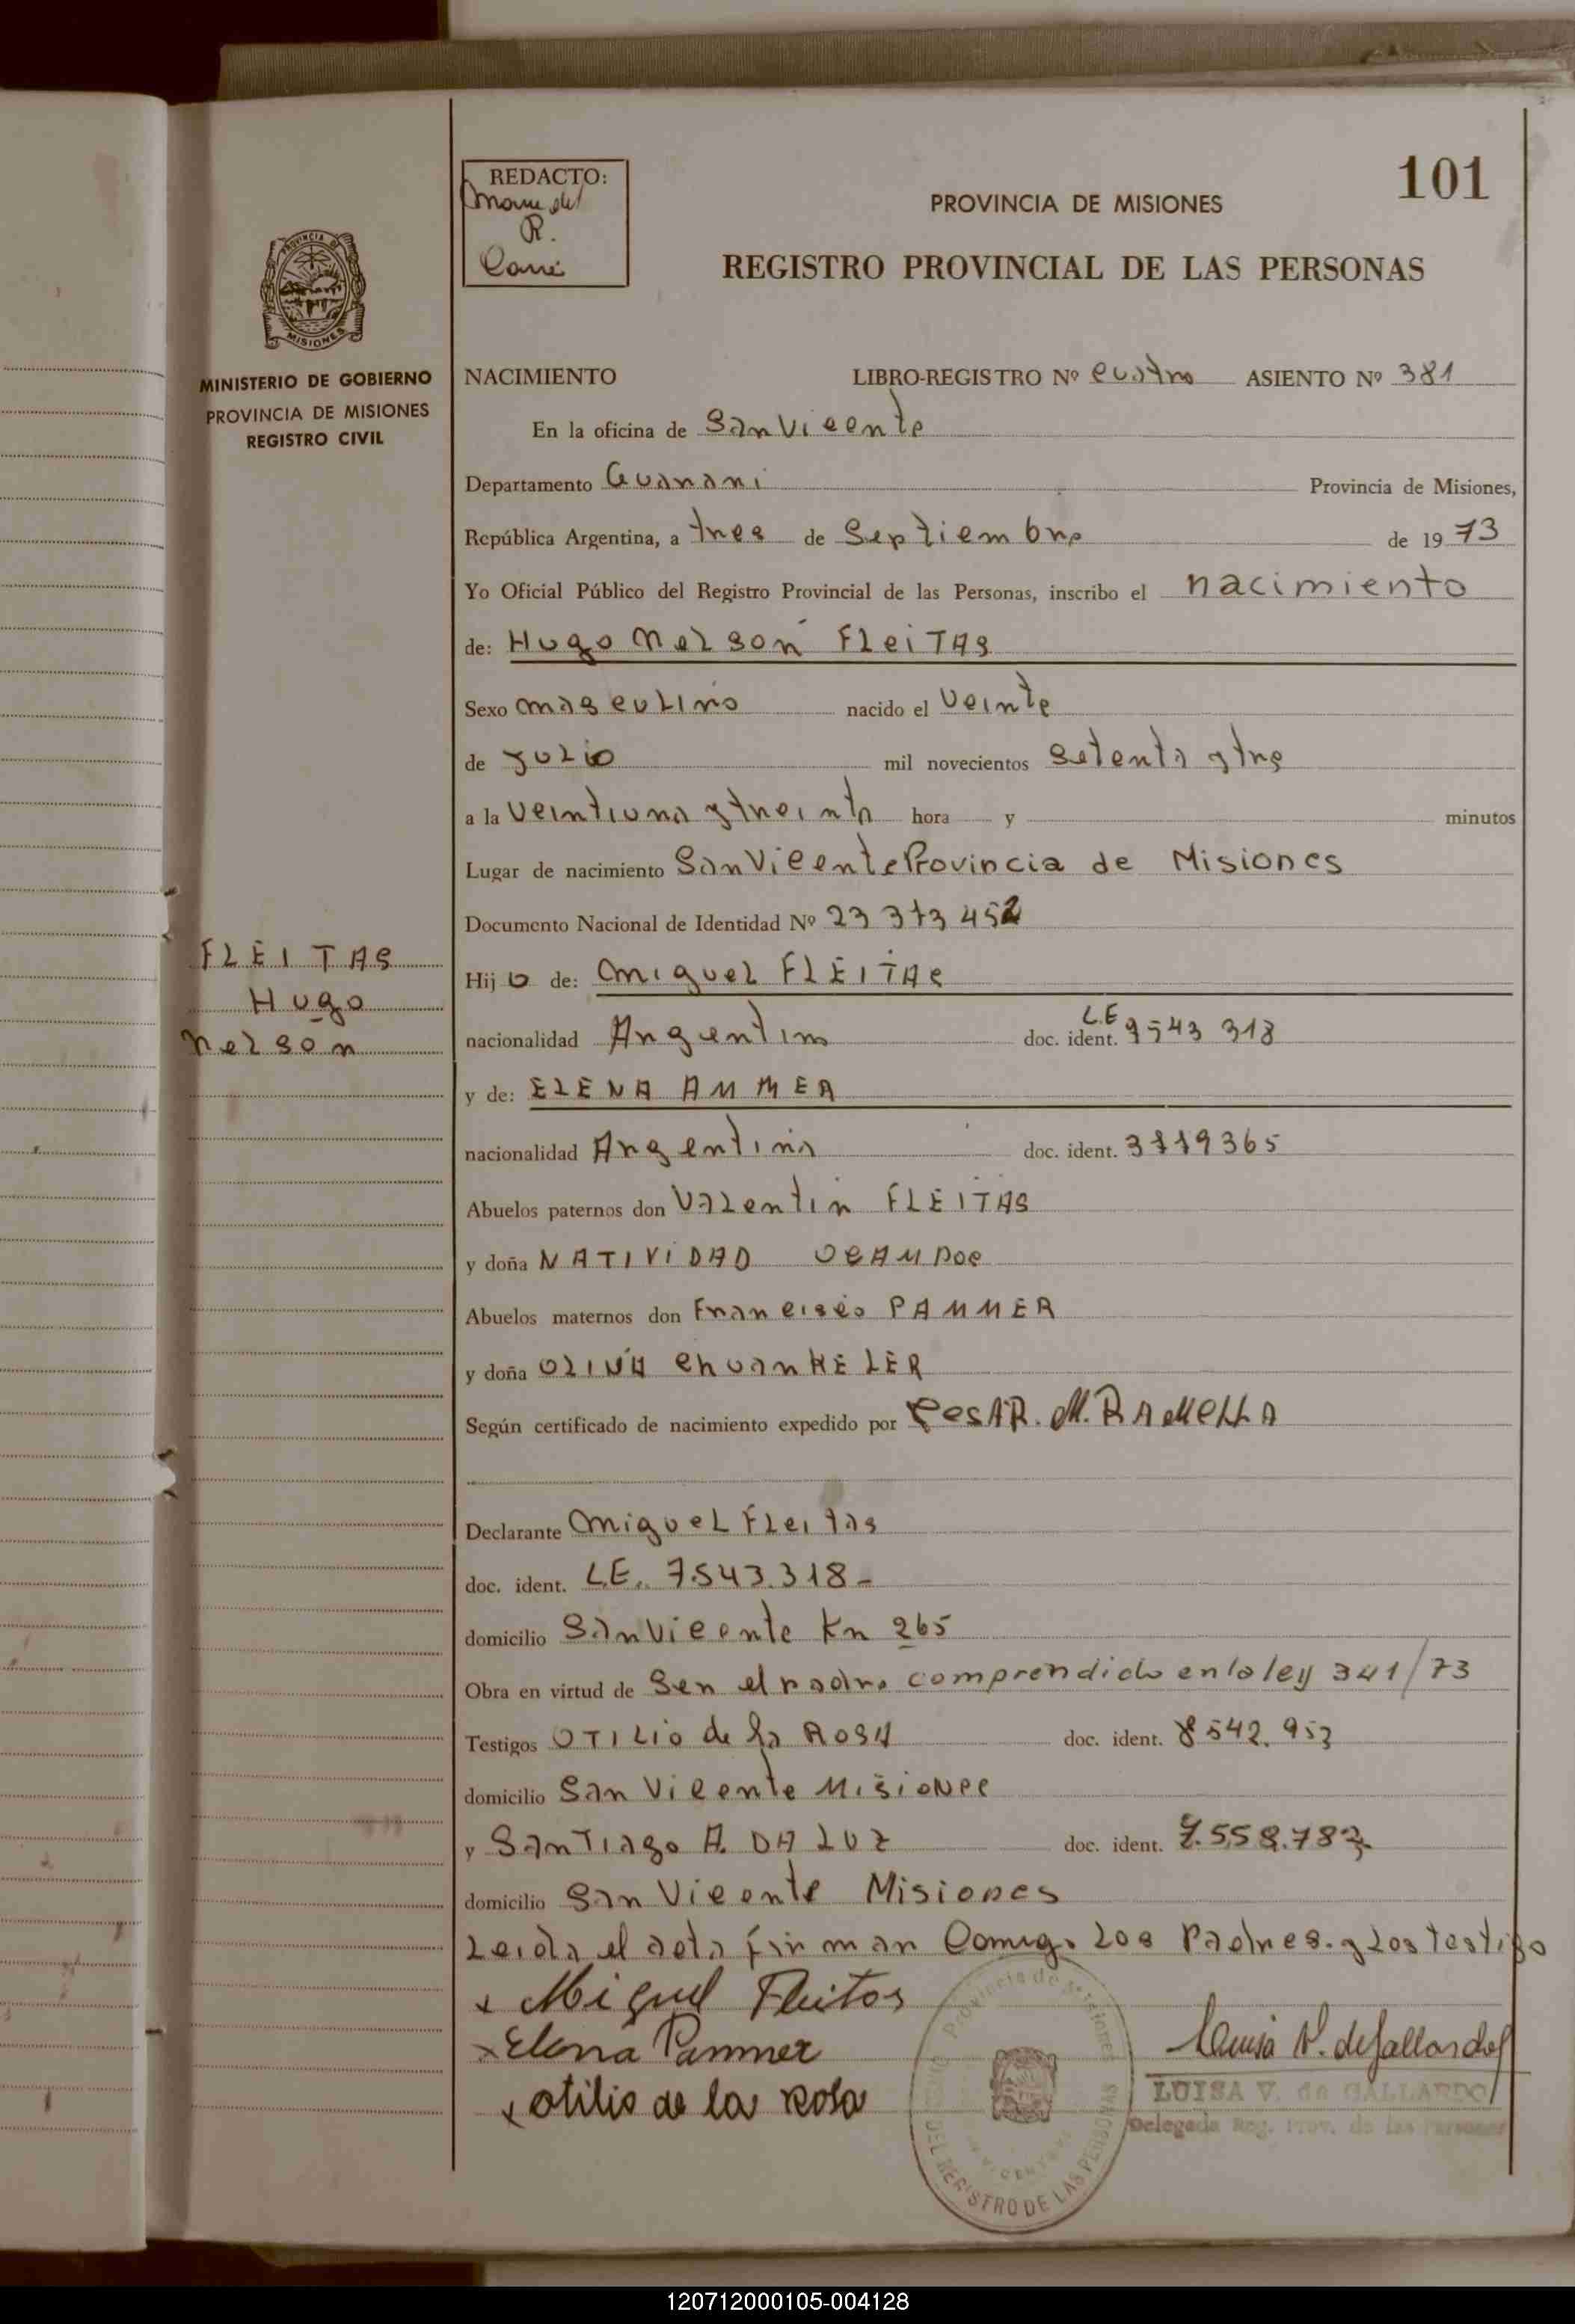 101
REDACTO:
R.
PROVINCIA DE MISIONES
REGISTRO PROVINCIAL DE LAS PERSONAS
PROVINCIA DE
MISIONES
MINISTERIO DE GOBIERNO
PROVINCIA DE MISIONES
REGISTRO CIVIL
NACIMIENTO LIBRO-REGISTRO Nº cuatro ASIENTO Nº 381
En la oficina de San Vicente
Departamento Guarani Provincia de Misiones,
República Argentina, a tres de Septiembre de 1973
Yo Oficial Público del Registro Provincial de las Personas, inscribo el nacimiento
de: Hugo Nelson FLeiTAS
Sexo masculino nacido el veinte
de Julio mil novecientos setenta y tres
a la veintiuna y treinta hora y minutos
Lugar de nacimiento San Vicente Provincia de Misiones
Documento Nacional de Identidad Nº 23 373 452
FLEITAS
Hugo
Nelson
Hijo de: Miguel FLEITAS
nacionalidad Argentino doc. ident. L.E 7543 318
y de: ELENA AMMER
nacionalidad Argentina doc. ident. 3779365
Abuelos paternos don Valentin FLEITAS
y doña NATIVIDAD OCAMPOS
Abuelos maternos don Francisco PAMMER
y doña OLIVA ChuanKELER
Según certificado de nacimiento expedido por CESAR. M. RAMELLA
Declarante Miguel FLeitas
doc. ident. L.E. 7.543.318-
domicilio San Vicente Km 265
Obra en virtud de Ser el padre comprendido en la ley 341/73
Testigos OTILIO de la ROSA doc. ident. 8542.953
domicilio San Vicente Misiones
y SanTiago A. DA LUZ doc. ident. 7.558.783
domicilio San Vicente Misiones
Leida el acta firman Comigo Los Padres. y Los testigo
x Miguel Fleitas
x Elena Pammer
x otilio de la Rosa
Luisa V. de Gallardo
LUISA V. de GALLARDO
Delegada Reg. Prov. de las Personas
Provincia de Misiones
DEL REGISTRO DE LAS PERSONAS
120712000105-004128